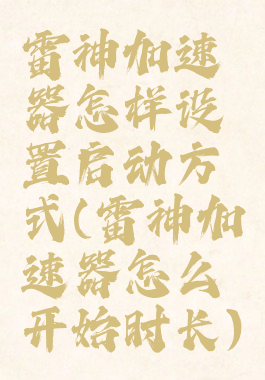 雷神加速
器怎样设
置启动方
式(雷神加
速器怎么
开始时长)